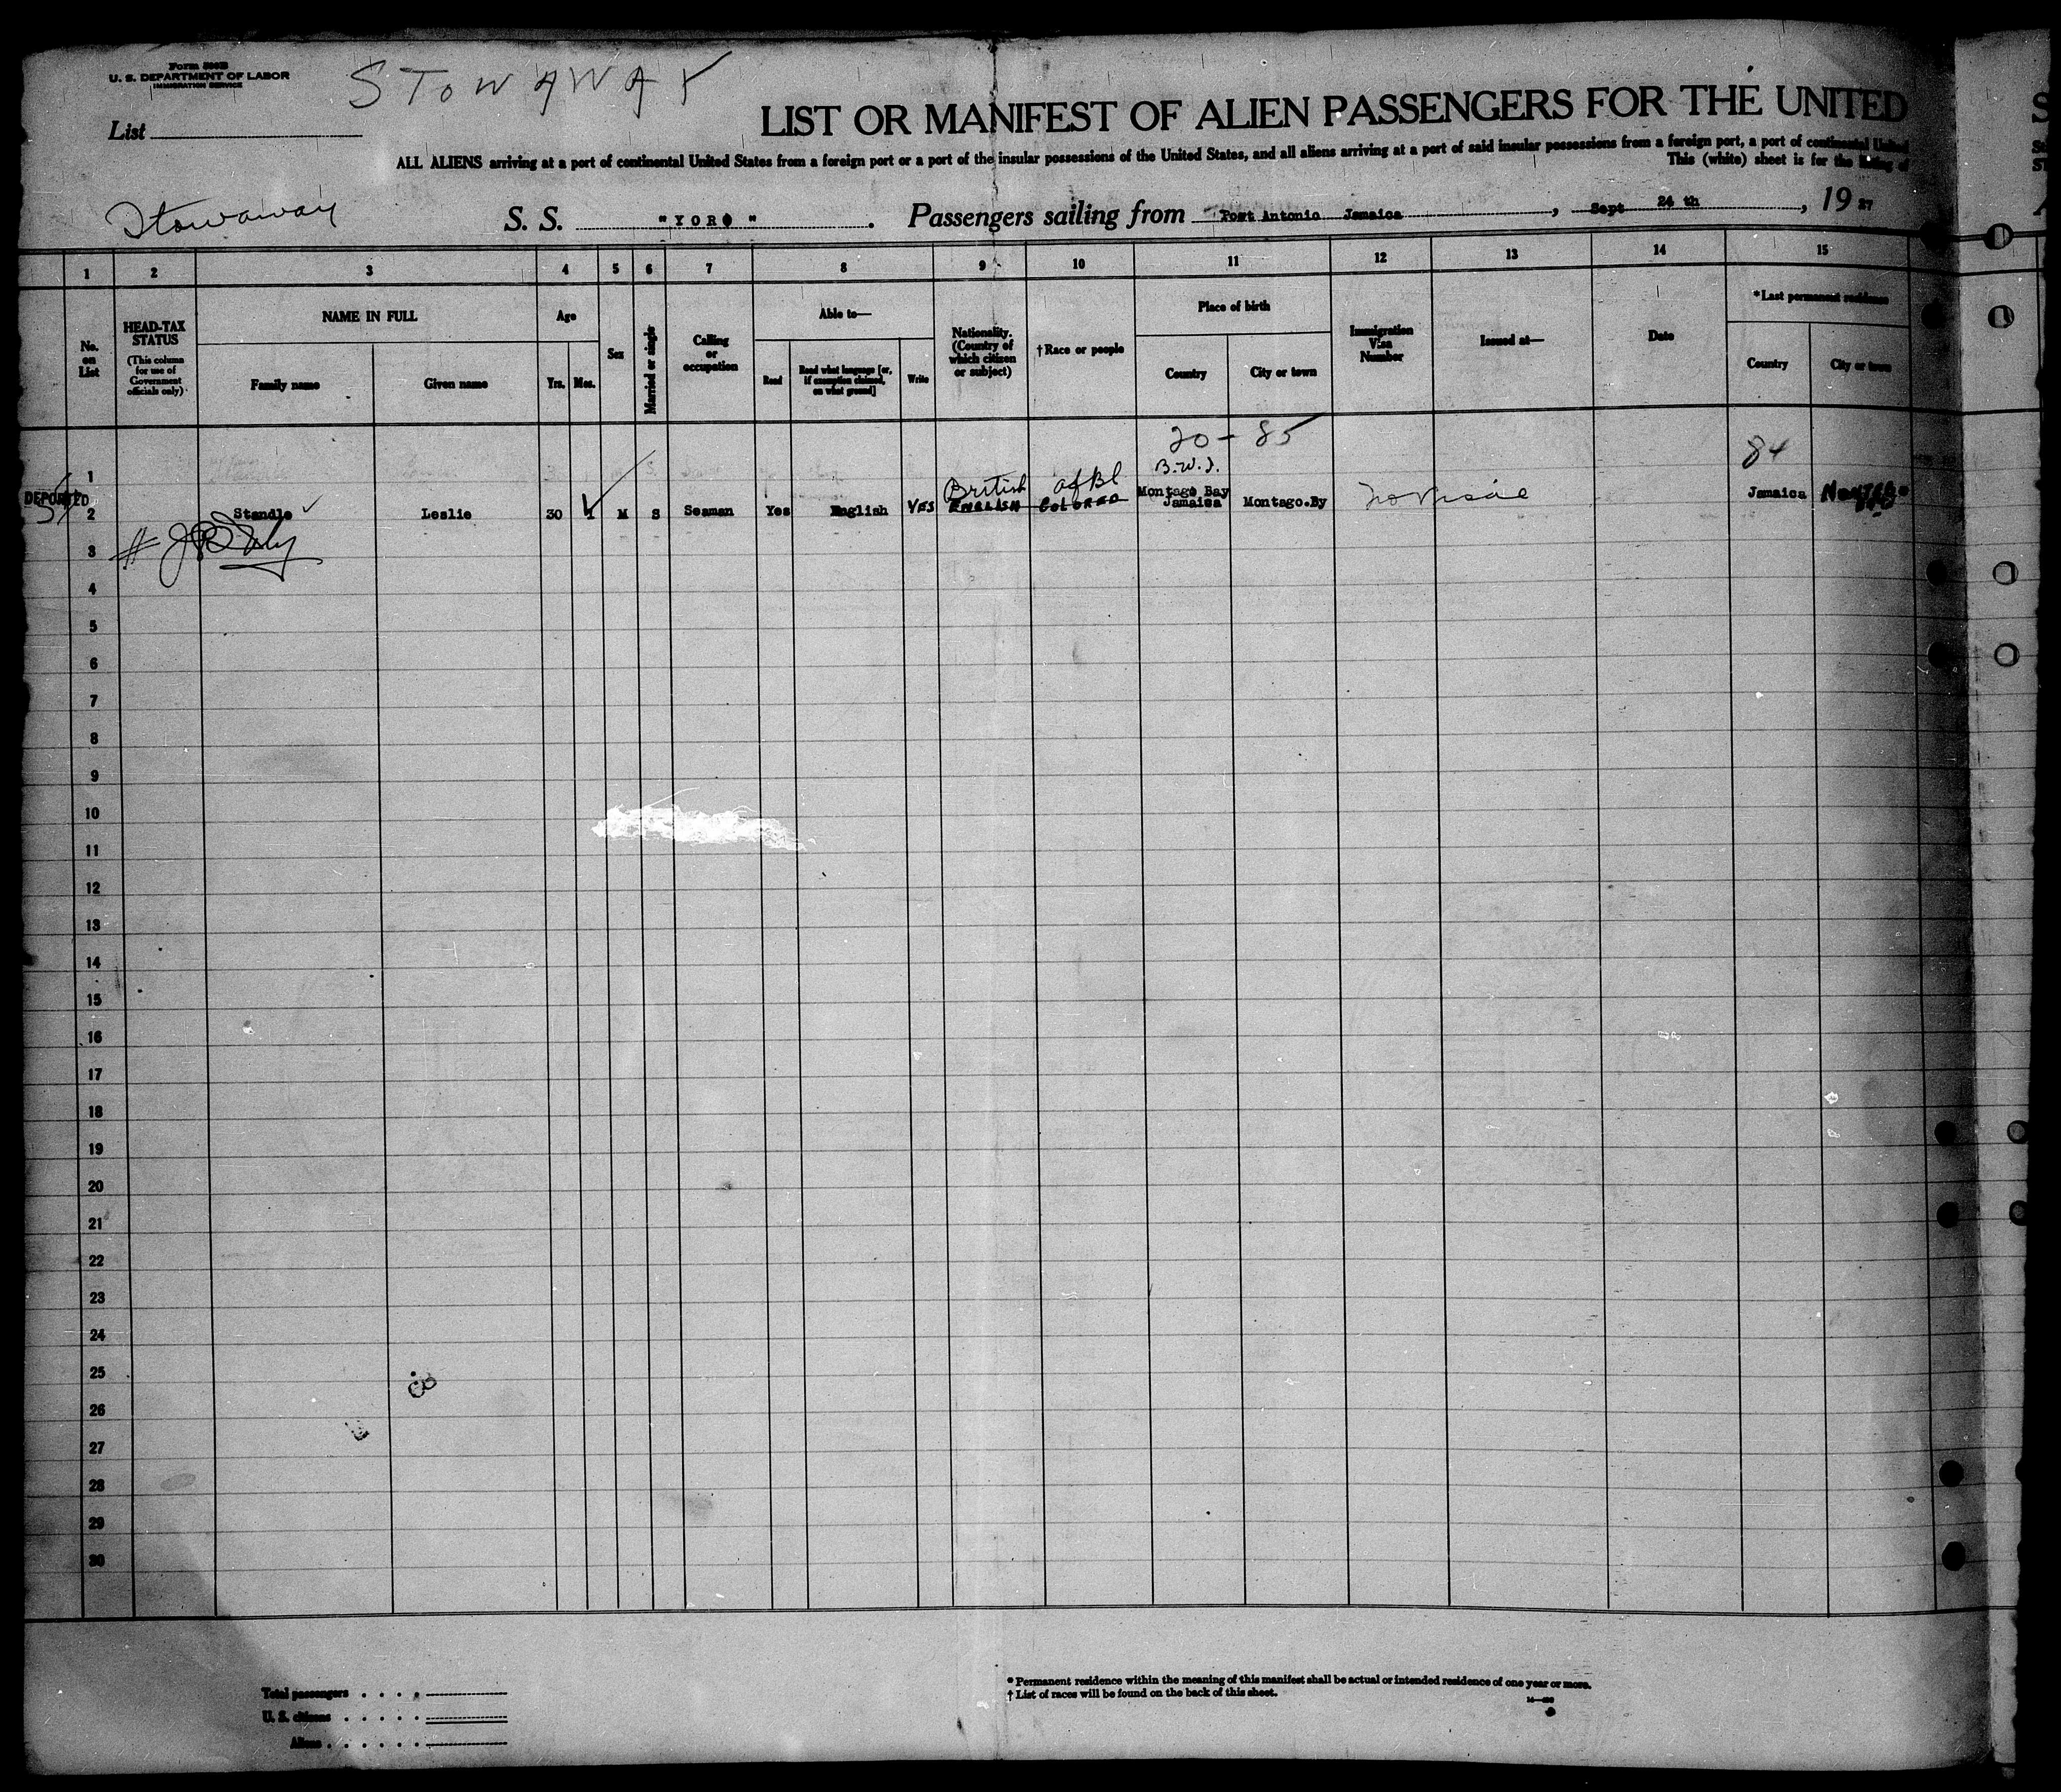 Form 500B
U. S. DEPARTMENT OF LABOR
IMMIGRATION SERVICE
STOWAWAY
List
LIST OR MANIFEST OF ALIEN PASSENGERS FOR THE UNITED
ALL ALIENS arriving at a port of continental United States from a foreign port or a port of the insular possessions of the United States, and all aliens arriving at a port of said insular possessions from a foreign port, a port of continental United
This (white) sheet is for the listing of
Stowaway
S. S. "YORO". Passengers sailing from Port Antonio Jamaica, Sept 24 th, 1927
1 2 3 4 5 6 7 8 9 10 11 12 13 14 15
No. on List
HEAD-TAX STATUS
(This column for use of Government officials only)
NAME IN FULL
Family name
Given name
Age
Yrs.
Mos.
Sex
Married or single
Calling or occupation
Able to—
Read
Read what language [or, if exemption claimed, on what ground]
Write
Nationality. (Country of which citizen or subject)
†Race or people
Place of birth
Country
City or town
Immigration Visa Number
Issued at—
Date
*Last permanent residence
Country
City or town
20-85
84
B.W.I.
British
af Bl
1
DEPORTED
2 Standle Leslie 30 1 M S Seaman Yes English YES ENGLISH COLORED Montago Bay Jamaica Montago.By no visa Jamaica
3
4
5
6
7
8
9
10
11
12
13
14
15
16
17
18
19
20
21
22
23
24
25
26
27
28
29
30
Total passengers
U. S. citizens
Aliens
* Permanent residence within the meaning of this manifest shall be actual or intended residence of one year or more.
† List of races will be found on the back of this sheet.